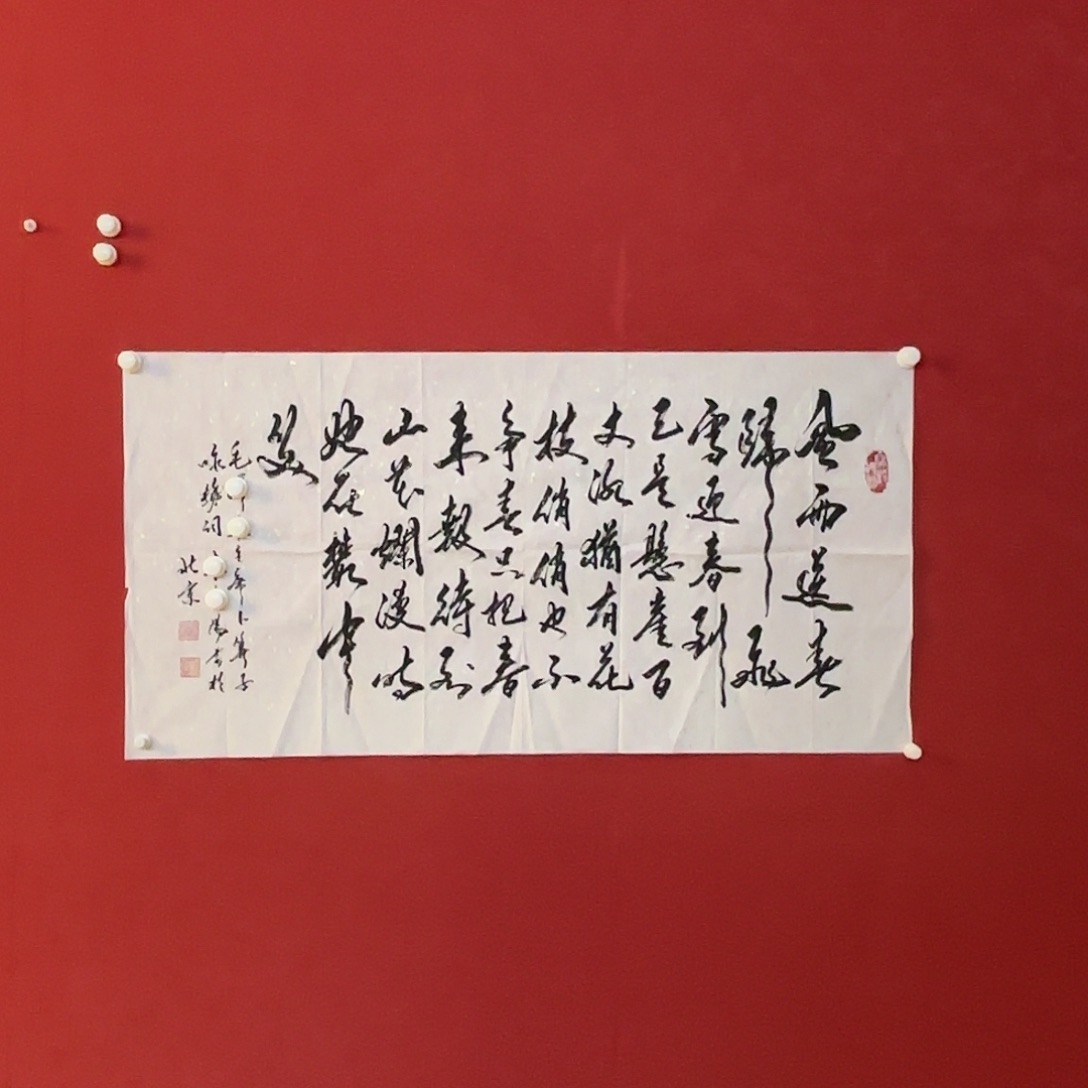 風雨送春
歸飛
雪迎春到
已是懸崖百
丈冰猶有花
枝俏俏也不
争春只把春
来報待到
山花爛漫時
她在叢中
笑
毛主席卜算子
咏梅詞書於
北京